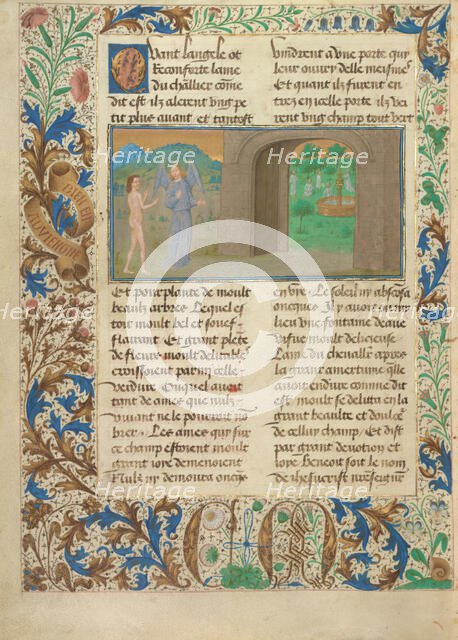 Quant langele ot
reconforte lame
du chlr̄ come
dit est ilz alerent ung pe
tit plus auant et tantost
vindrent a une porte qui
leur ouury delle meisme
Et quant ilz furent en
trez en icelle porte ilz vei
rent ung champ tout vert
Et pour plante de moult
beaux arbres Lequel es
toit moult bel et souef
flairant Et grant plete
de fleurs moult delitable
croissoient par my celle
verdure Ouquel auoit
tant de ames que nulz
viuant ne le pouroit no
brer Les ames qui sur
ce champ estoient moult
grant ioye demenoient
Nulz ny demoura oncqs
en vre Le soleil ny absconsa
oncques Il y auoit en my
lieu une fontaine deaue
viue moult delicieuse
Lame du cheuallier apres
la grant amertune qlle
auoit endure comme dit
est moult se delita en la
grant beaulte et doulce
de celluy champ Et dist
par grant deuotion et
ioye Benoit soit le nom
de ihesucrist nreseignr
CM
Heritage
Heritage
Heritage
Heritage
Heritage
Heritage
Heritage
Heritage
C